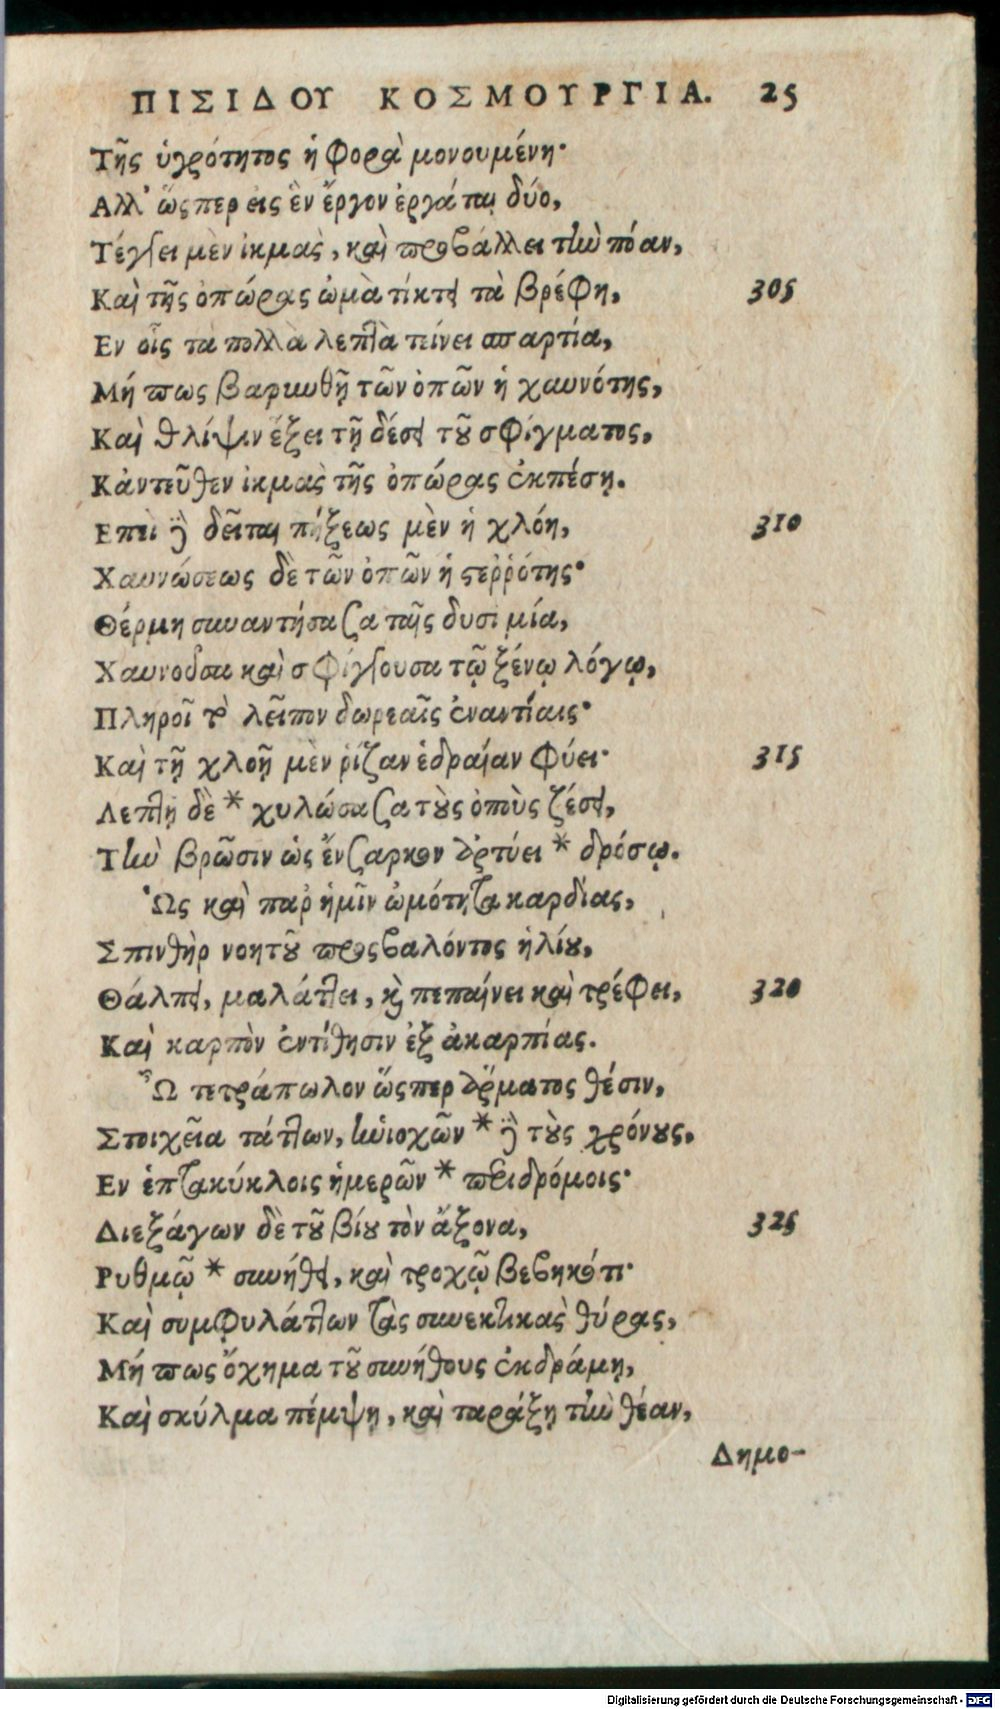 ΠΙΣΙΔΟΥ ΚΟΣΜΟΥΡΓΙΑ. 25
Τῆς ὑγρότητος ἡ φορὰ μονουμένη·
Αλλ' ὥςπερ εἰς ἓν ἔργον ἐργάται δύο,
Τέγγει μὲν ἰκμὰς, καὶ προβάλλει τὴν πόαν,
Καὶ τῆς ὀπώρας ὠμὰ τίκτει τὰ βρέφη, 305
Εν οἷς τὰ πολλὰ λεπτὰ τείνει σπαρτία,
Μή πως βαρυνθῇ τῶν ὀπῶν ἡ χαυνότης,
Καὶ θλίψιν ἕξει τῇ δέσει τοῦ σφίγματος,
Κἀντεῦθεν ἰκμὰς τῆς ὀπώρας ἐκπέσῃ.
Επεὶ γὰρ δεῖται πήξεως μὲν ἡ χλόη, 310
Χαυνώσεως δὲ τῶν ὀπῶν ἡ στεῤῥότης·
Θέρμη συναντήσασα ταῖς δυσὶ μία,
Χαυνοῦσα καὶ σφίγγουσα τῷ ξένῳ λόγῳ,
Πληροῖ τὸ λεῖπον δωρεαῖς ἐναντίαις·
Καὶ τῇ χλοῇ μὲν ῥίζαν ἑδραίαν φύει· 315
Λεπτῇ δὲ * χυλώσασα τοὺς ὀποὺς ζέσει,
Τὴν βρῶσιν ὡς ἔνσαρκον ἀρτύει * δρόσῳ.
Ὡς καὶ παρ' ἡμῖν ὠμότητα καρδίας,
Σπινθὴρ νοητοῦ προςβαλόντος ἡλίου,
Θάλπει, μαλάττει, καὶ πεπαίνει καὶ τρέφει, 320
Καὶ καρπὸν ἐντίθησιν ἐξ ἀκαρπίας.
Ὢ τετράπωλον ὥςπερ ἅρματος θέσιν,
Στοιχεῖα τάττων, ἡνιοχῶν * γὰρ τοὺς χρόνους,
Εν ἑπτακύκλοις ἡμερῶν * περιδρόμοις·
Διεξάγων δὲ τοῦ βίου τὸν ἄξονα, 325
Ρυθμῷ * συνήθει, καὶ τροχῷ βεβηκότι·
Καὶ συμφυλάττων τὰς συνεκτικὰς θύρας,
Μή πως ὄχημα τοῦ συνήθους ἐκδράμῃ,
Καὶ σκύλμα πέμψῃ, καὶ ταράξῃ τὴν θέαν,
Δημο-
Digitalisierung gefördert durch die Deutsche Forschungsgemeinschaft - DFG